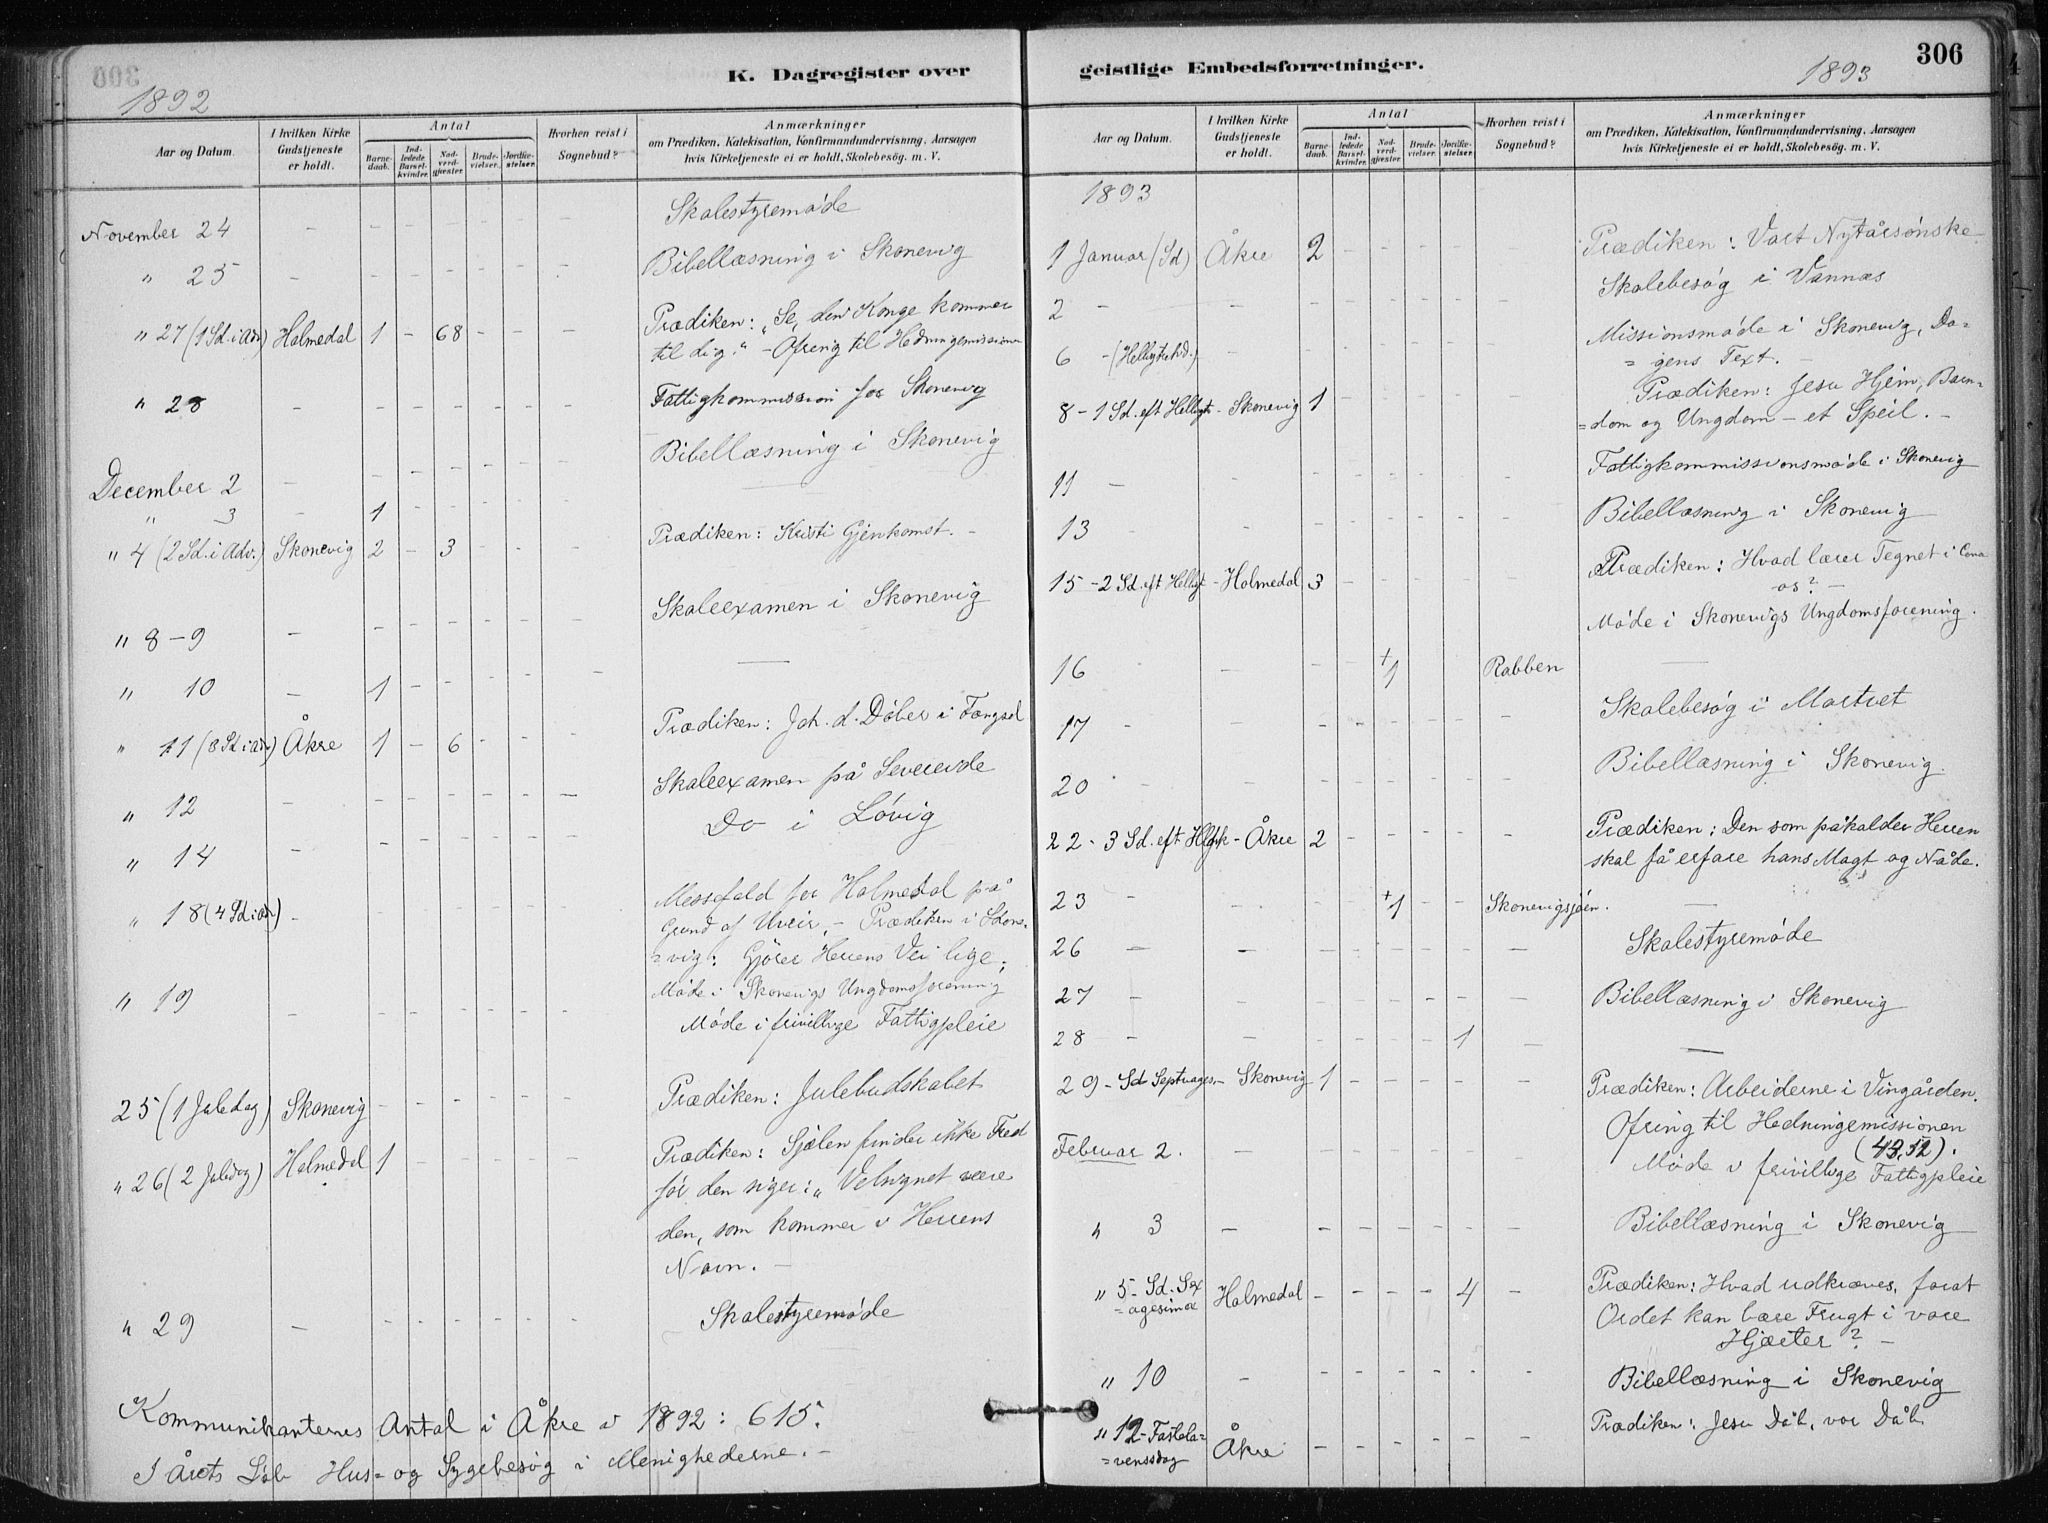 K. Dagregister over
1892
Aar og Datum.
I hvilken Kirke Gudstjeneste er holdt.
Antal
Barne-daab.
Ind-ledede Barsel-kvinder.
Nad-verd-gjæster.
Brude-vielser.
Jordfæ-stelser.
Hvorhen reist i Sognebud?
Anmærkninger
om Prædiken, Katekisation, Konfirmandundervisning, Aarsagen
hvis Kirketjeneste ei er holdt, Skolebesög. m. V.
November 24 - - - - - - - Skolestyremøde
" 25 - - - - - - - Bibellæsning i Skonevig
" 27 (1 Sd. i Adv) Holmedal 1 - 68 - - - Prædiken: "Se, den Konge kommer
til dig." - Ofring til Hedningemissionen
" 28 - - - - - - - Fattigkommission for Skonevig
December 2 - - - - - - - Bibellæsning i Skonevig
" 3 - 1 - - - - - —
" 4 (2 Sd. i Adv.) Skonevig 2 - 3 - - - Prædiken: Kristi Gjenkomst. -
" 8-9 - - - - - - - Skoleexamen i Skonevig
" 10 - 1 - - - - - —
" 11 (3 Sd. i Adv) Åkre 1 - 6 - - - Prædiken: Joh. d. Døber i Fængsel
" 12 - - - - - - - Skoleexamen på
" 14 - - - - - - - Do i Løvig
" 18 (4 Sd. i Adv) - - - - - - - Messefald for Holmedal på
Grund af Uveir. - Prædiken i Skone-
=vig: Gjører Herrens Vei lige;
" 19 - - - - - - - Møde i Skonevigs Ungdomsforening
Møde i frivillige Fattigpleie
25 (1 Juledag) Skonevig - - - - - - Prædiken: Julebudskabet
" 26 (2 Juledag) Holmedal 1 - - - - - Prædiken: Sjælen finder ikke Fred
før den siger: "Velsignet være
den, som kommer i Herrens
Navn. -
" 29 - - - - - - - Skolestyremøde
Kommunikanternes Antal i Åkre i 1892: 615.
I Årets Løb Hus- og Sygebesøg i Menighederne. -
geistlige Embedsforretninger.
1893
306
Aar og Datum.
I hvilken Kirke Gudstjeneste er holdt.
Antal
Barne-daab.
Ind-ledede Barsel-kvinder.
Nad-verd-gjæster.
Brude-vielser.
Jordfæ-stelser.
Hvorhen reist i Sognebud?
Anmærkninger
om Prædiken, Katekisation, Konfirmandundervisning, Aarsagen
hvis Kirketjeneste ei er holdt, Skolebesög. m. V.
1893
1 Januar (Sd) Åkre 2 - - - - - Prædiken: Vort Nytårsønske
2 - - - - - - - Skolebesøg i Vannes
6 - (Helligtrekd.) - - - - - - - Missionsmøde i Skonevig, Da-
=gens Text. -
8 - 1 Sd. eft Helligt - Skonevig 1 - - - - - Prædiken: Jesu Hjem, Barn-
=dom og Ungdom - et Speil. -
11 - - - - - - - Fattigkommissionsmøde i Skonevig
13 - - - - - - - Bibellæsning i Skonevig
15 - 2 Sd. eft Helligt - Holmedal 3 - - - - - Prædiken: Hvad lærer Tegnet i Cana
os? -
Møde i Skonevigs Ungdomsforening.
16 - - - +1 - - Rabben —
17 - - - - - - - Skolebesøg i
20 - - - - - - - Bibellæsning i Skonevig.
22 - 3 Sd. eft Hlgtrk - Åkre 2 - - - - - Prædiken: Den som påkalder Herren
skal få erfare hans Magt og Nåde.
23 - - - +1 - - Skonevigsjøen. —
26 - - - - - - - Skolestyremøde
27 - - - - - - - Bibellæsning i Skonevig
28 - - - - - - 1 - —
29 - Sd Septuages. - Skonevig 1 - - - - - Prædiken: Arbeiderne i Vingården.
Ofring til Hedningemissionen
(43,52).
Februar 2. - - - - - - - Møde i frivillige Fattigpleie
" 3 - - - - - - - Bibellæsning i Skonevig
" 5 - Sd. Sex
=agesimæ Holmedal - - - - 4 - Prædiken: Hvad udkræves, forat
Ordet kan bære Frugt i vore
Hjærter? -
" 10 - - - - - - - Bibellæsning i Skonevig
" 12 - Fastela=
=vensdag Åkre - - - - - - Prædiken: Jesu Dåb, vor Dåb.